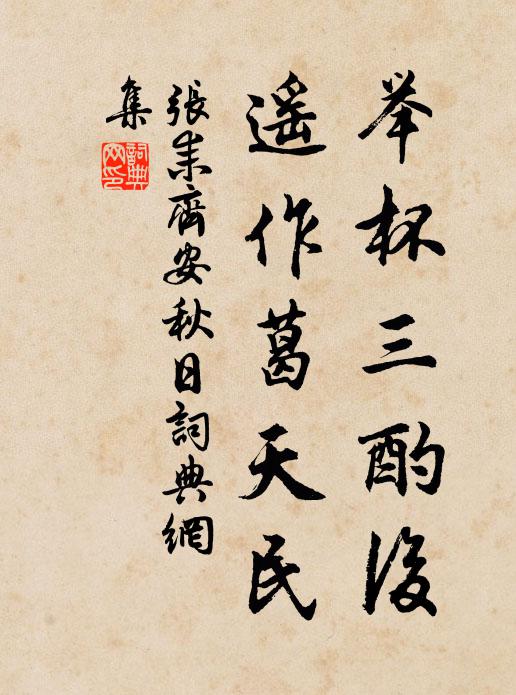 举杯三酌后
遥作葛天民
張耒齊安秋日詞典網
集
詞典
网印